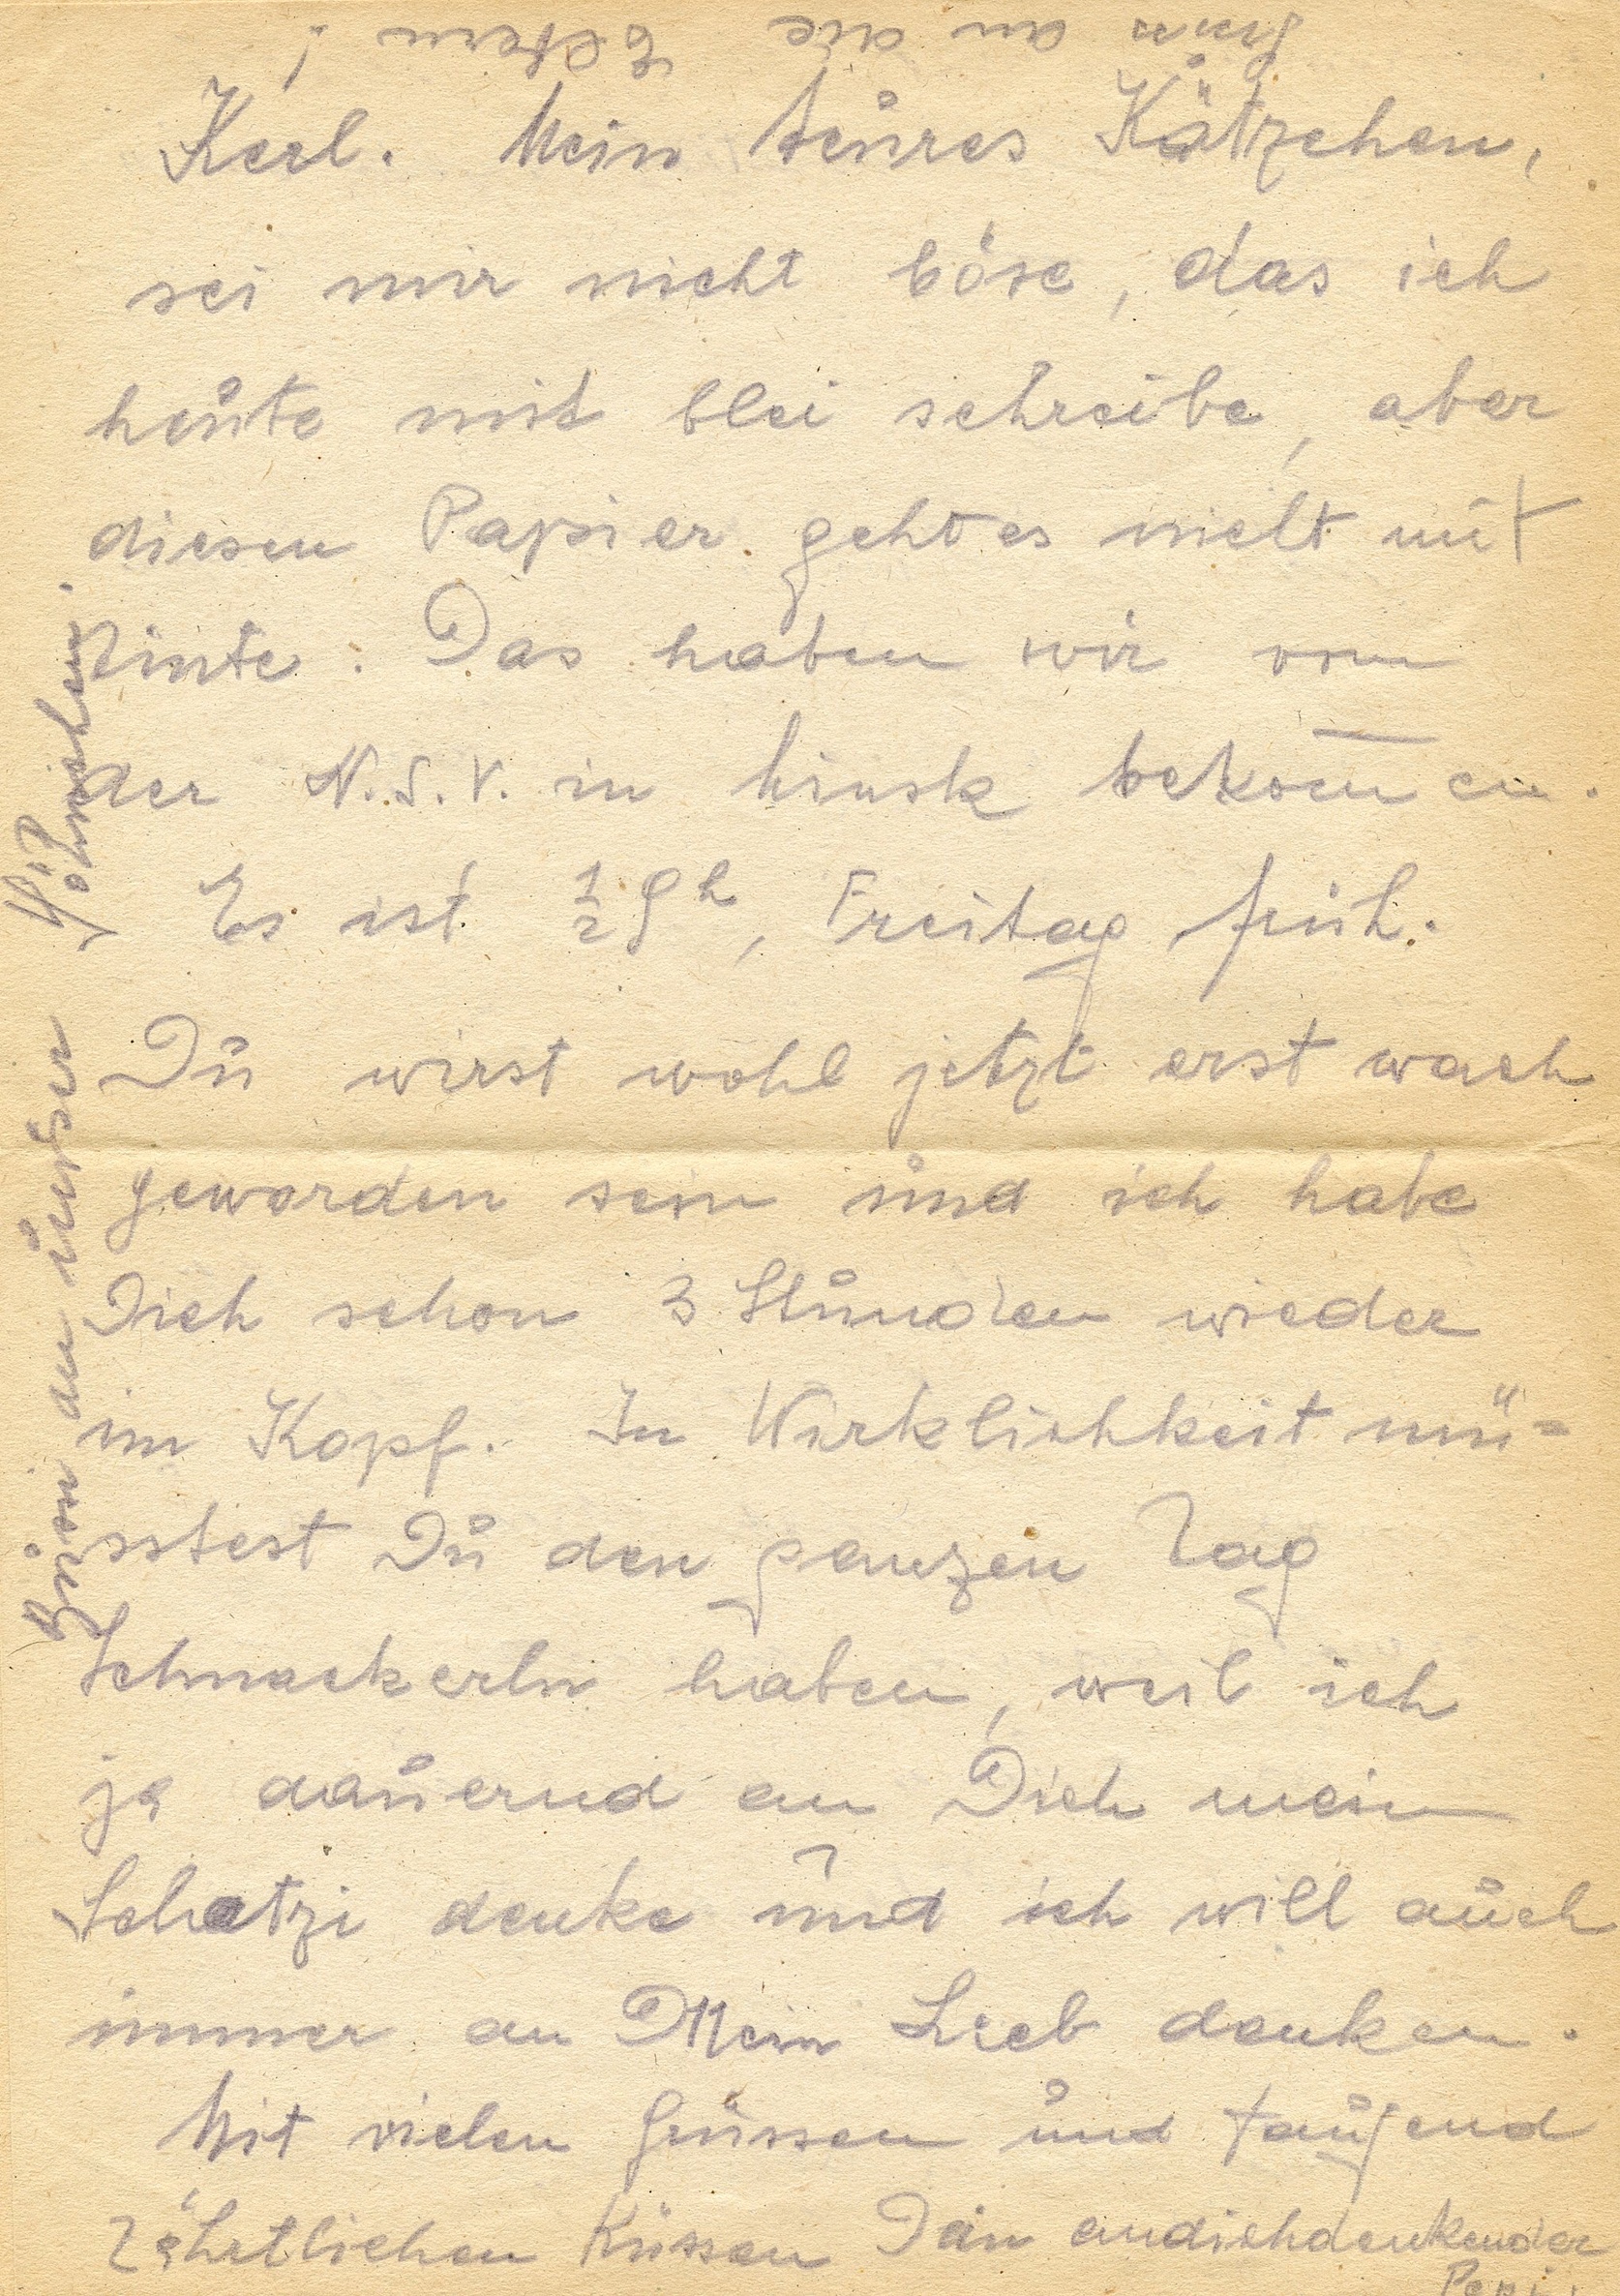 Kerl. Mein teures Kätzchen,
sei mir nicht böse, das ich
heute mit blei schreibe, aber
diesen Papier geht es nicht mit
Tinte. Das haben wir von
der N.S.V. in Minsk bekom̅en.
Es ist ½ 9h, Freitag früh.
Du wirst wohl jetzt erst wach
geworden sein und ich habe
Dich schon 3 Stunden wieder
im Kopf. In Wirklichkeit mü=
sstest Du den ganzen Tag
Schnackerln haben, weil ich
ja dauernd an Dich mein
Schatzi denke und ich will auch
immer an Mein Lieb denken.
Mit vielen Grüssen und tausend
Zährtlichen Küssen Dein andichdenkender
Pepi
an unser
an die Eltern!